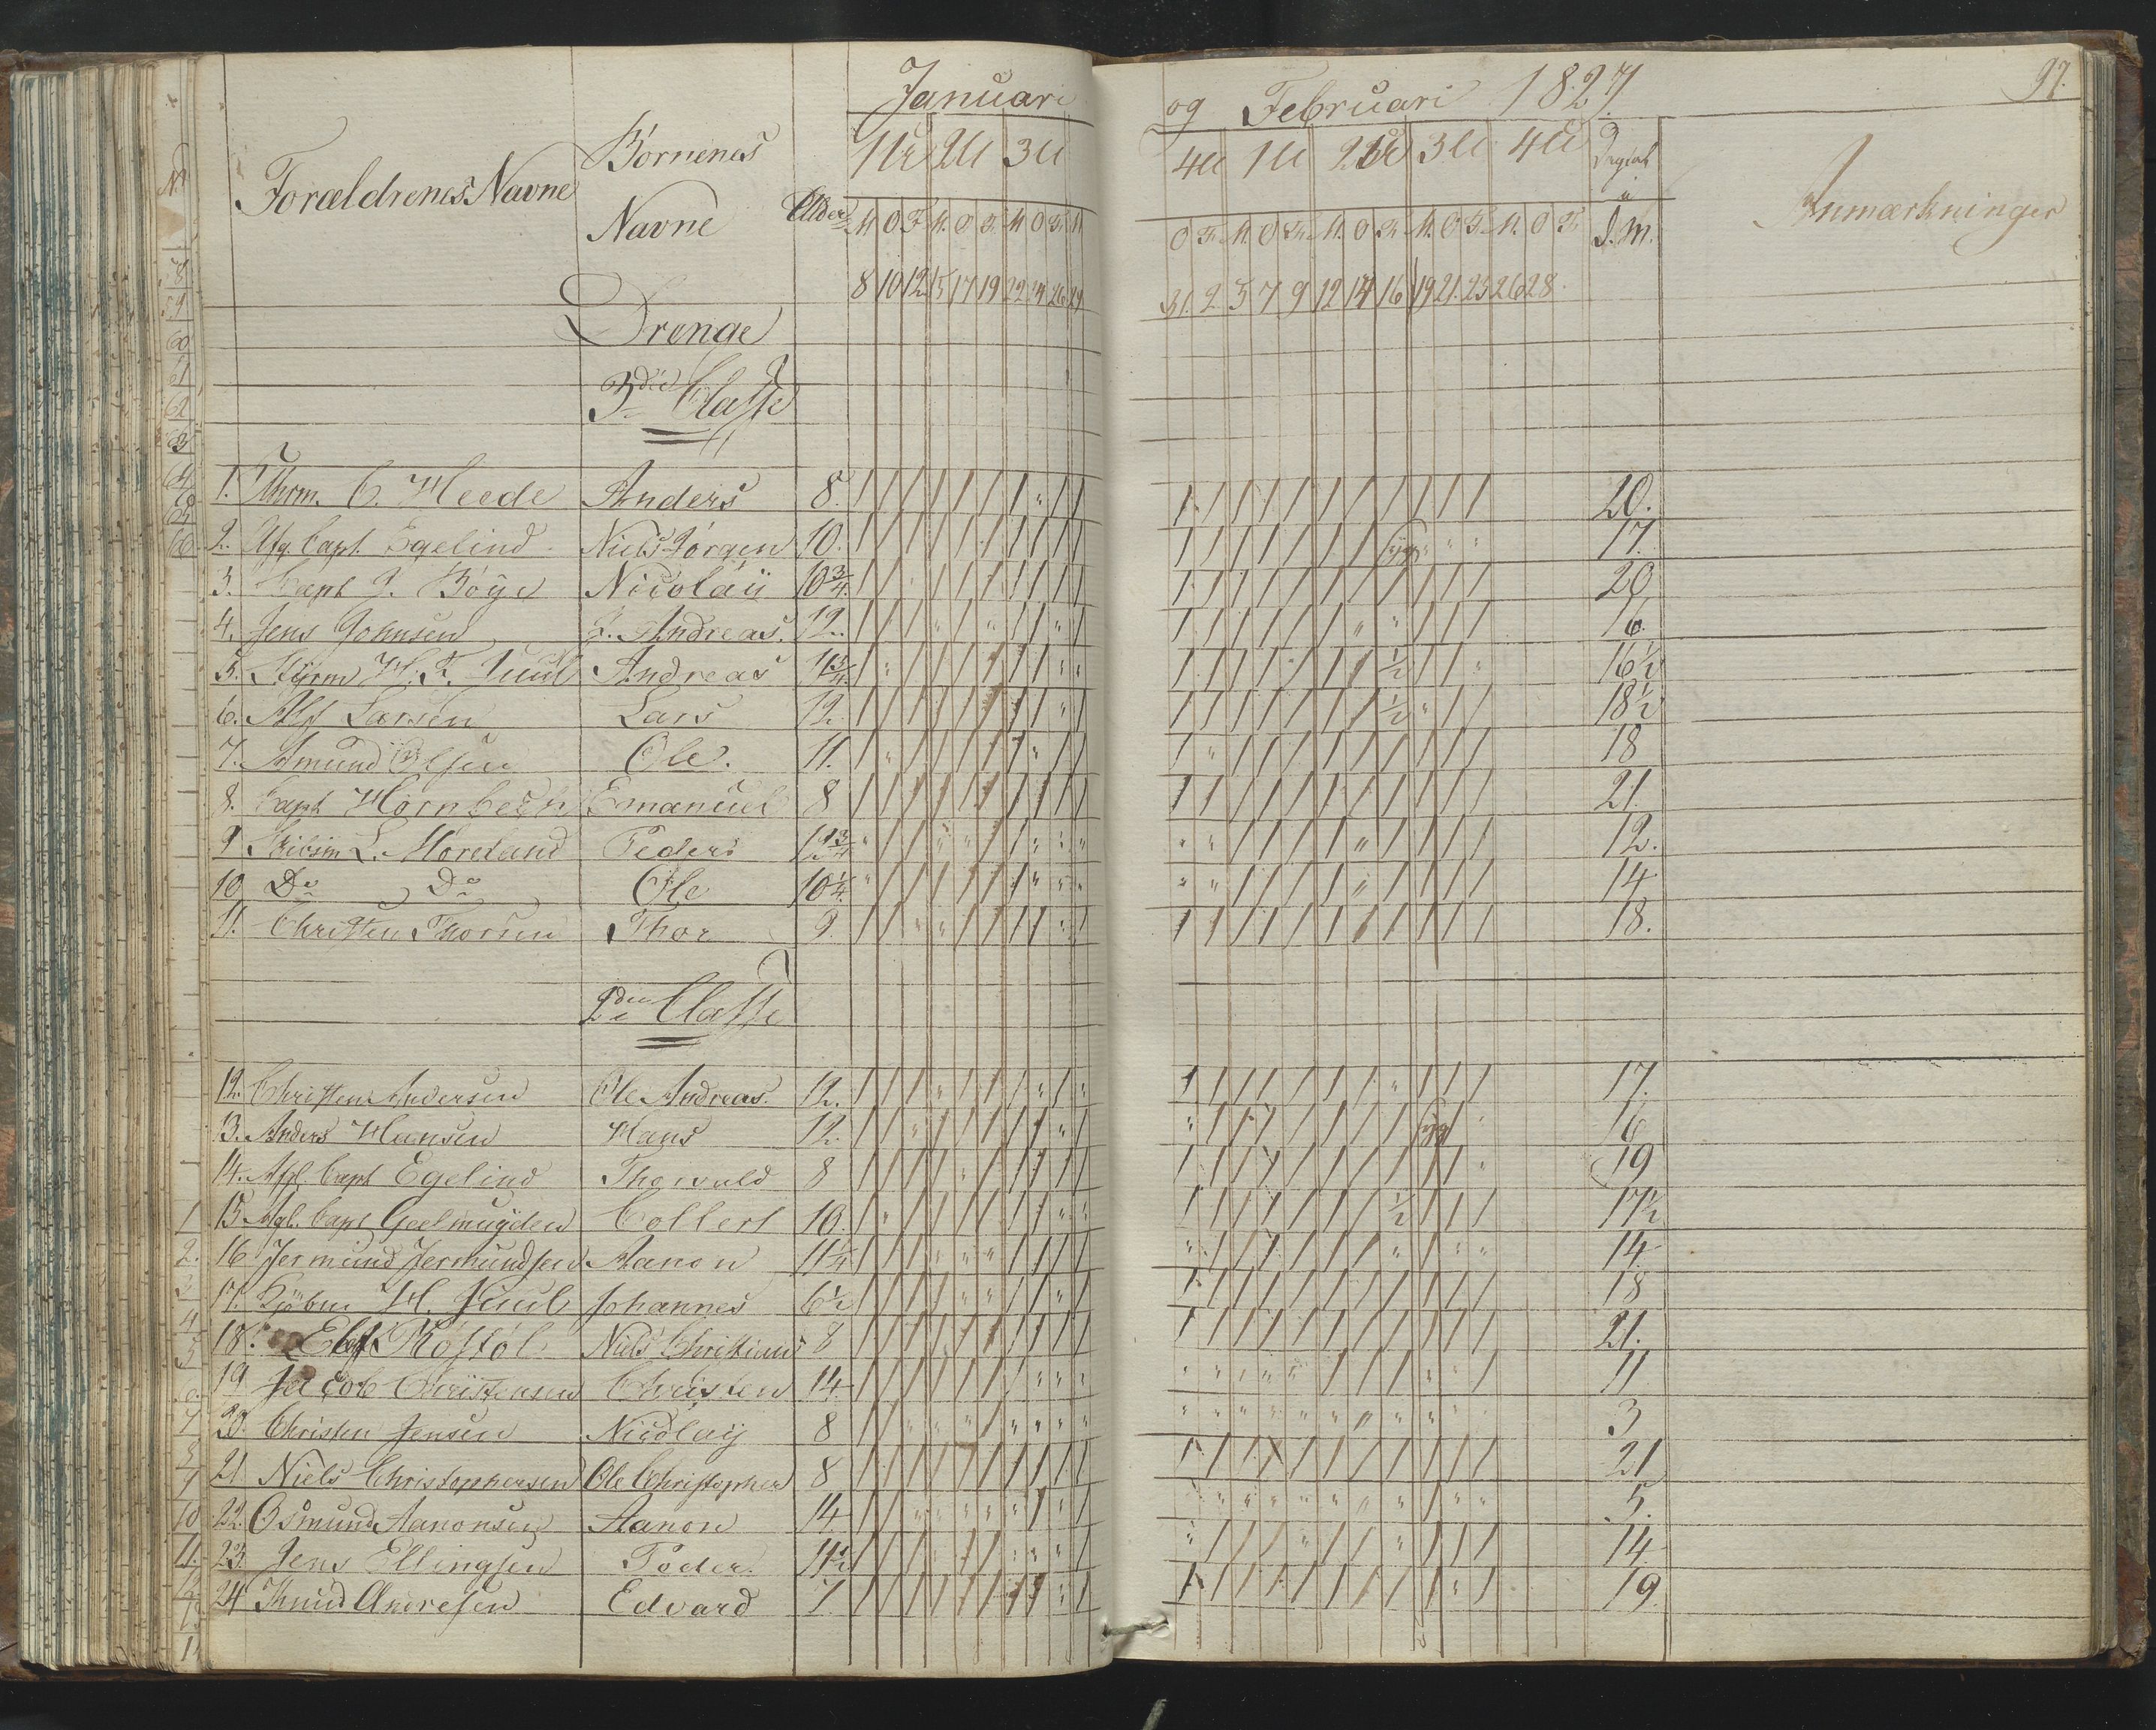 Januari og Februari 1827
97.
No Forældrenes Navne Børnenes Navne Alder 1U 2U 3U 4U 1U 2U 3U 4U Anmærkninger
M O F M. O F. M O Fr M O Fr. M. O Fr. M. O Fr. M. O Fr. M. O Fr. D. M.
8 10 12 15 17 19 22 24 26 29 31. 2. 5 7 9 12 14 16 19 21. 23 26 28.
Drenge
3die Classe
1. C. Heede Anders 8. 20.
2. Afg. Capt. Egelind Niels Jørgen 10. syg 17.
3. Capt J. Bøye Nicolaii 10 3/4. 20
4. Jens Johnsen J. Andreas. 12. 16.
5. Styrm H. T. Juul Andreas 11 3/4 1/2 16 1/2
6. Alf Larsen Lars 12. 1/2 18 1/2
7. Amund Olsen Ole. 11. 18
8. Capt Hornbech Emanuel 8 21.
9 L. Moreland Peder 12 3/4 12.
10 Do Do Ole 10 1/4. 14
11. Christen Thorsen Thor 9. 18.
2den Classe
12. Christen Andersen Ole Andreas. 12. 17.
13. Anders Hansen Hans 12. syg 16
14. Afg. Capt Egelind Thorvald 8 19
15 Afg. Capt Geelmuyden Collert 10. 1/2 17 1/2
16 Jermund Jermundsen Aanon 11 1/4 14
17. Kjøbm H. Juul Johannes 6 1/2 18
18. Røstøl Niels Christian 8 21.
19 Jacob Christensen Christen 14 11
20. Christen Jensen Nicolay 8 3
21 Niels Christophersen Ole Christopher 8 21
22. Osmund Aanonsen Aanon 14 5.
23. Jens Ellingsen Peder. 11 1/2 14
24 Knud Andresen Edvard 7 19.